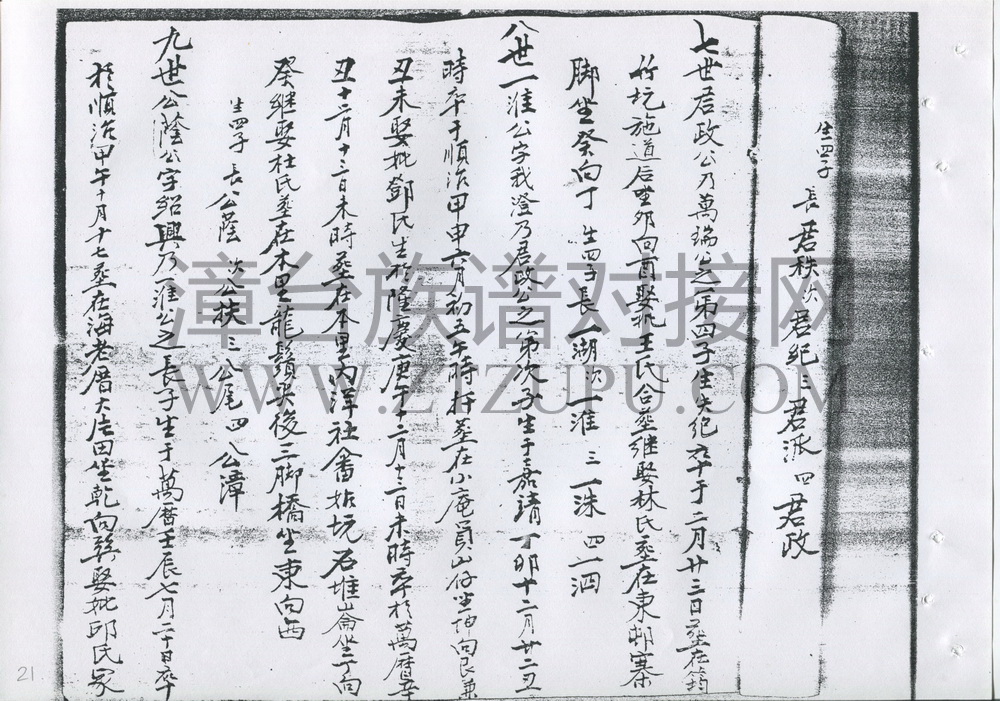 生四子 長君秩 次君紀 三君派 四君政
七世君政公乃萬瑞公之第四子生失紀卒于二月廿三日葬在筠
竹坑施道后坐卯向酉娶妣王氏合葬繼娶林氏葬在東邨寨
脚坐癸向丁 生四子長一湖 次一淮 三一洙 四一泗
八世一淮公字我澄乃君政公之第次子生于嘉靖丁卯十二月廿二丑
時卒于順治甲申六月初五午時扦葬在小庵員山仔坐坤向艮兼
丑未娶妣鄧氏生於隆慶庚午十二月十二日未時卒於萬曆辛
丑十二月十三日未時葬在本里內洋社畬姑坑石堆崙坐丁向
癸繼娶杜氏葬在本里龍鬚尖後三脚橋坐東向西
生四子 長公蔭 次公扶 三公尾 四公漳
九世公蔭公字紹興乃一淮公之長子生于萬曆壬辰七月二十日卒
於順治甲午十月十七葬在海老厝大㡳田坐乾向巽娶妣邱氏家
漳台族谱对接网
WWW.ZTZUPU.COM
21